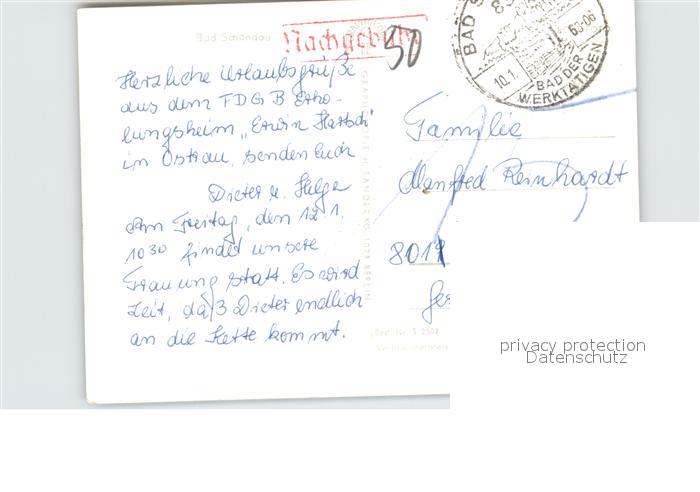 Bad Schandau
Nachgebühr
50
BAD S
10.1. 68-06
BAD DER
WERKTÄTIGEN
Herzliche Urlaubsgrüße
aus dem FDGB Erho-
lungsheim „Erwin Hartsch"
in Ostrau, senden Euch
Dieter u. Helga
Am Freitag, den 12.1.
1030 findet unsere
Trauung statt. Es wird
Zeit, daß Dieter endlich
an die Kette kommt.
Familie
Manfred Reinhardt
801
Ger
privacy protection
Datenschutz